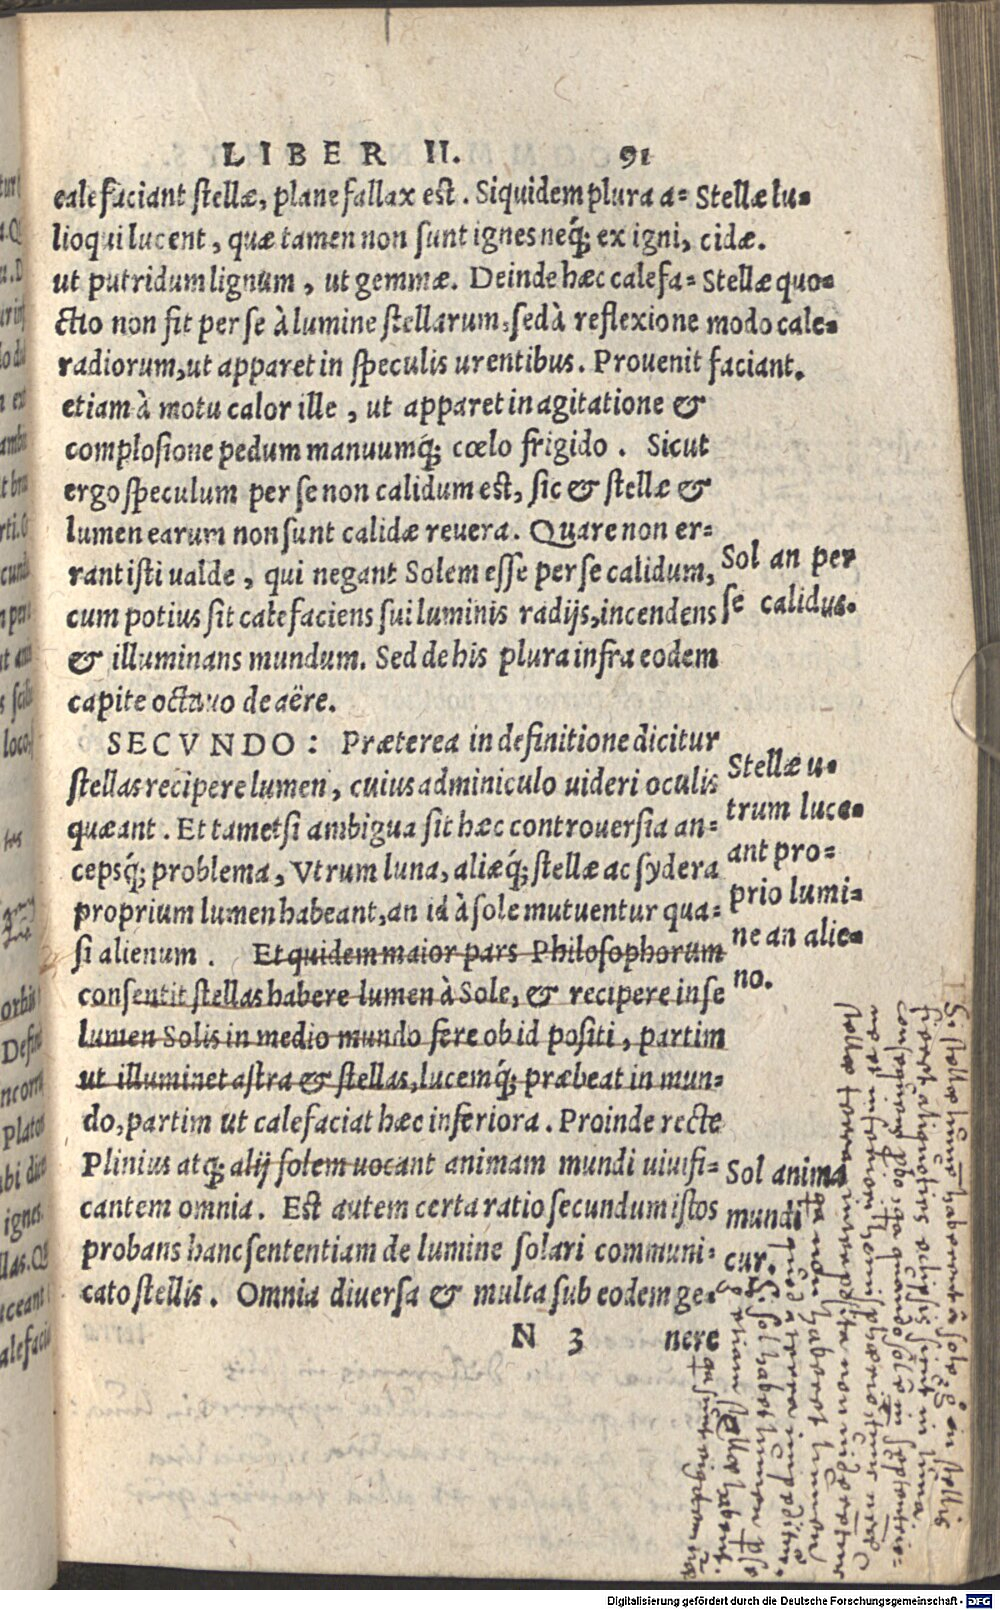 LIBER II. 91
calefaciant stellæ, plane fallax est. Siquidem plura a=
lioqui lucent, quæ tamen non sunt ignes neq́; ex igni,
ut putridum lignum, ut gemmæ. Deinde hæc calefa=
ctio non fit per se à lumine stellarum, sed à reflexione
radiorum, ut apparet in speculis urentibus. Prouenit
etiam à motu calor ille, ut apparet in agitatione &
complosione pedum manuumq́; cœlo frigido. Sicut
ergo speculum per se non calidum est, sic & stellæ &
lumen earum non sunt calidæ reuera. Quare non er=
rant isti ualde, qui negant Solem esse per se calidum,
cum potius sit calefaciens sui luminis radijs, incendens
& illuminans mundum. Sed de his plura infra eodem
capite octauo de aëre.
SECVNDO: Præterea in definitione dicitur
stellas recipere lumen, cuius adminiculo uideri oculis
quæant. Et tametsi ambigua sit hæc controuersia an=
cepsq́; problema, Vtrum luna, aliæq́; stellæ ac sydera
proprium lumen habeant, an id à sole mutuentur qua=
si alienum. Et quidem maior pars Philosophorum
consentit stellas habere lumen à Sole, & recipere in se
lumen Solis in medio mundo fere ob id positi, partim
ut illuminet astra & stellas, lucemq́; præbeat in mun=
do, partim ut calefaciat hæc inferiora. Proinde recte
Plinius atq; alij solem uocant animam mundi uiuifi=
cantem omnia. Est autem certa ratio secundum istos
probans hanc sententiam de lumine solari communi=
cato stellis. Omnia diuersa & multa sub eodem ge=
N 3 nere
Stellæ lu=
cidæ.
Stellæ quo=
modo cale=
faciant.
Sol an per
se calidus.
Stellæ u=
trum luce=
ant pro=
prio lumi=
ne an alie=
no.
Sol anima
mundi
cur.
Digitalisierung gefördert durch die Deutsche Forschungsgemeinschaft - DFG